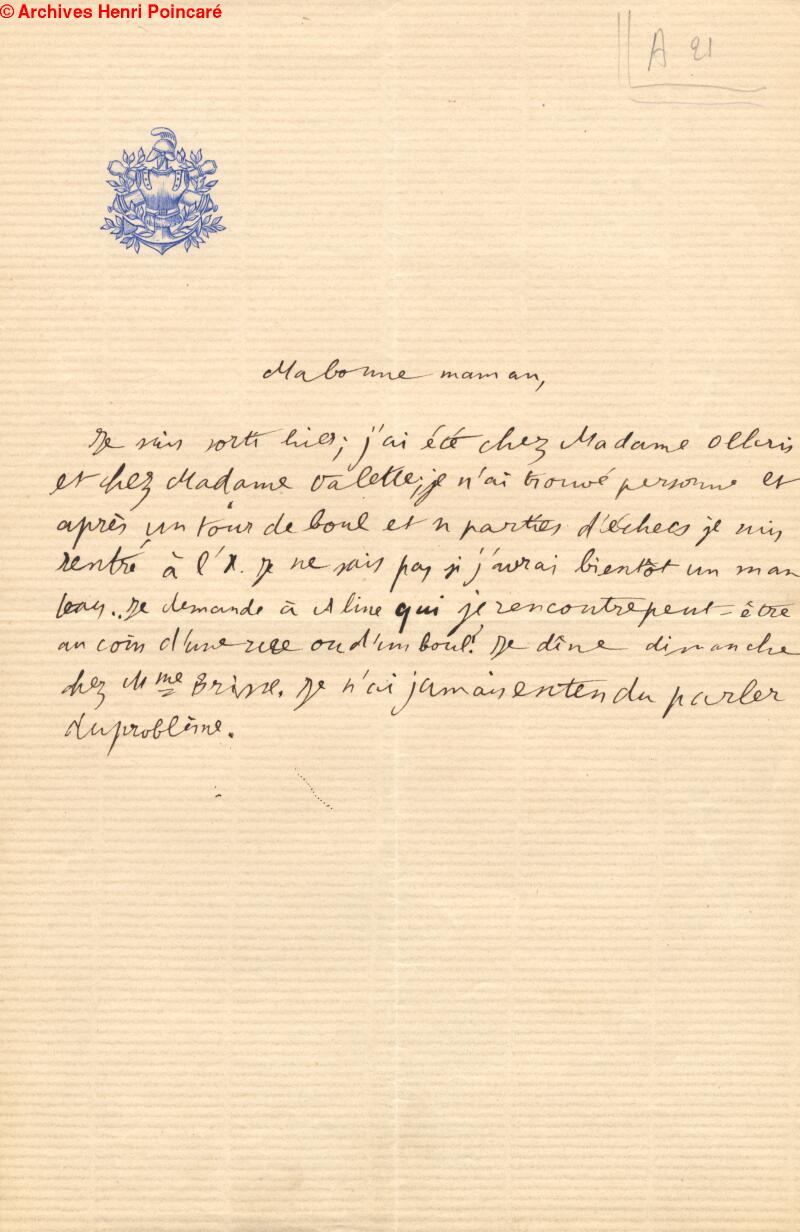 © Archives Henri Poincaré
A 21
Ma bonne maman,
Je suis sorti hier; j'ai été chez Madame Olleris
et chez Madame Valette; je n'ai trouvé personne et
après un tour de boul et n parties d'échecs je suis
rentré à l'X. Je ne sais pas si j'aurai bientôt un man
teau.. Je demande à Aline qui je rencontre peut-être
au coin d'une rue ou d'un boul! Je dîne dimanche
chez Mme Brisse. Je n'ai jamais entendu parler
du problème.